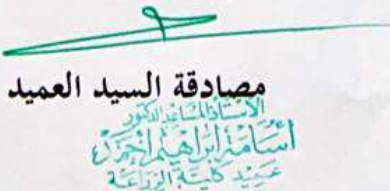 مصادقة السيد العميد
الاستاذ المساعد الدكتور
أسامة ابراهيم احمد
عميد كلية الزراعة